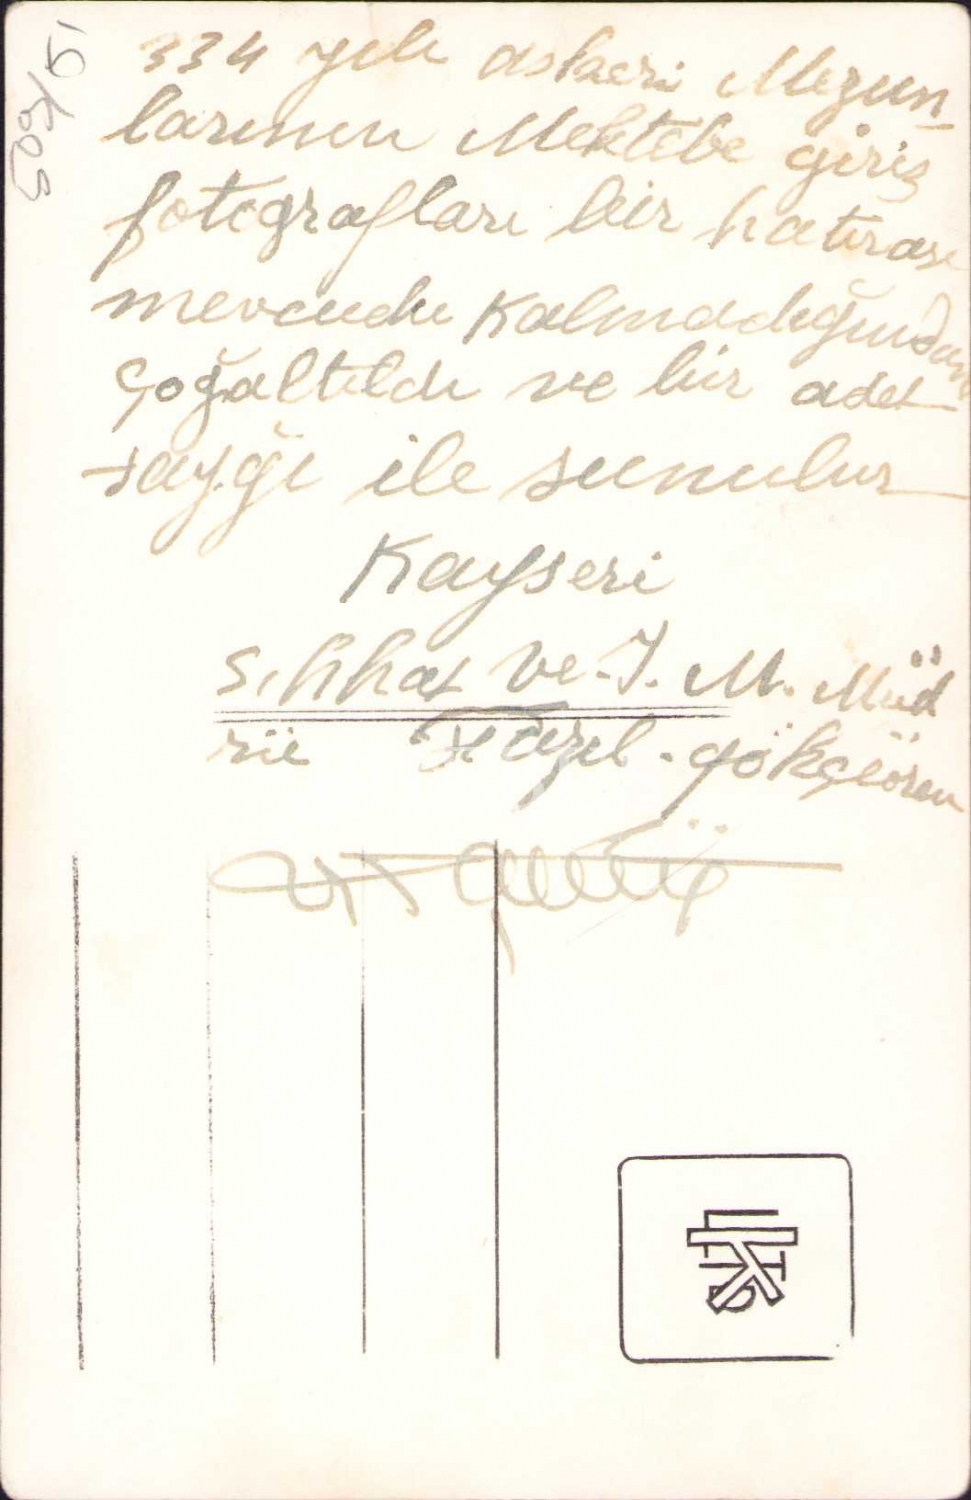 334 yılı askeri Mezun-
larının Mektebe giriş
fotoğrafları bir hatırası
mevcudu kalmadığından
Çoğaltıldı ve bir adet
saygı ile sunulur
Kayseri
Sıhhat ve İ. M. Müd
rü Fazıl Gökçeören